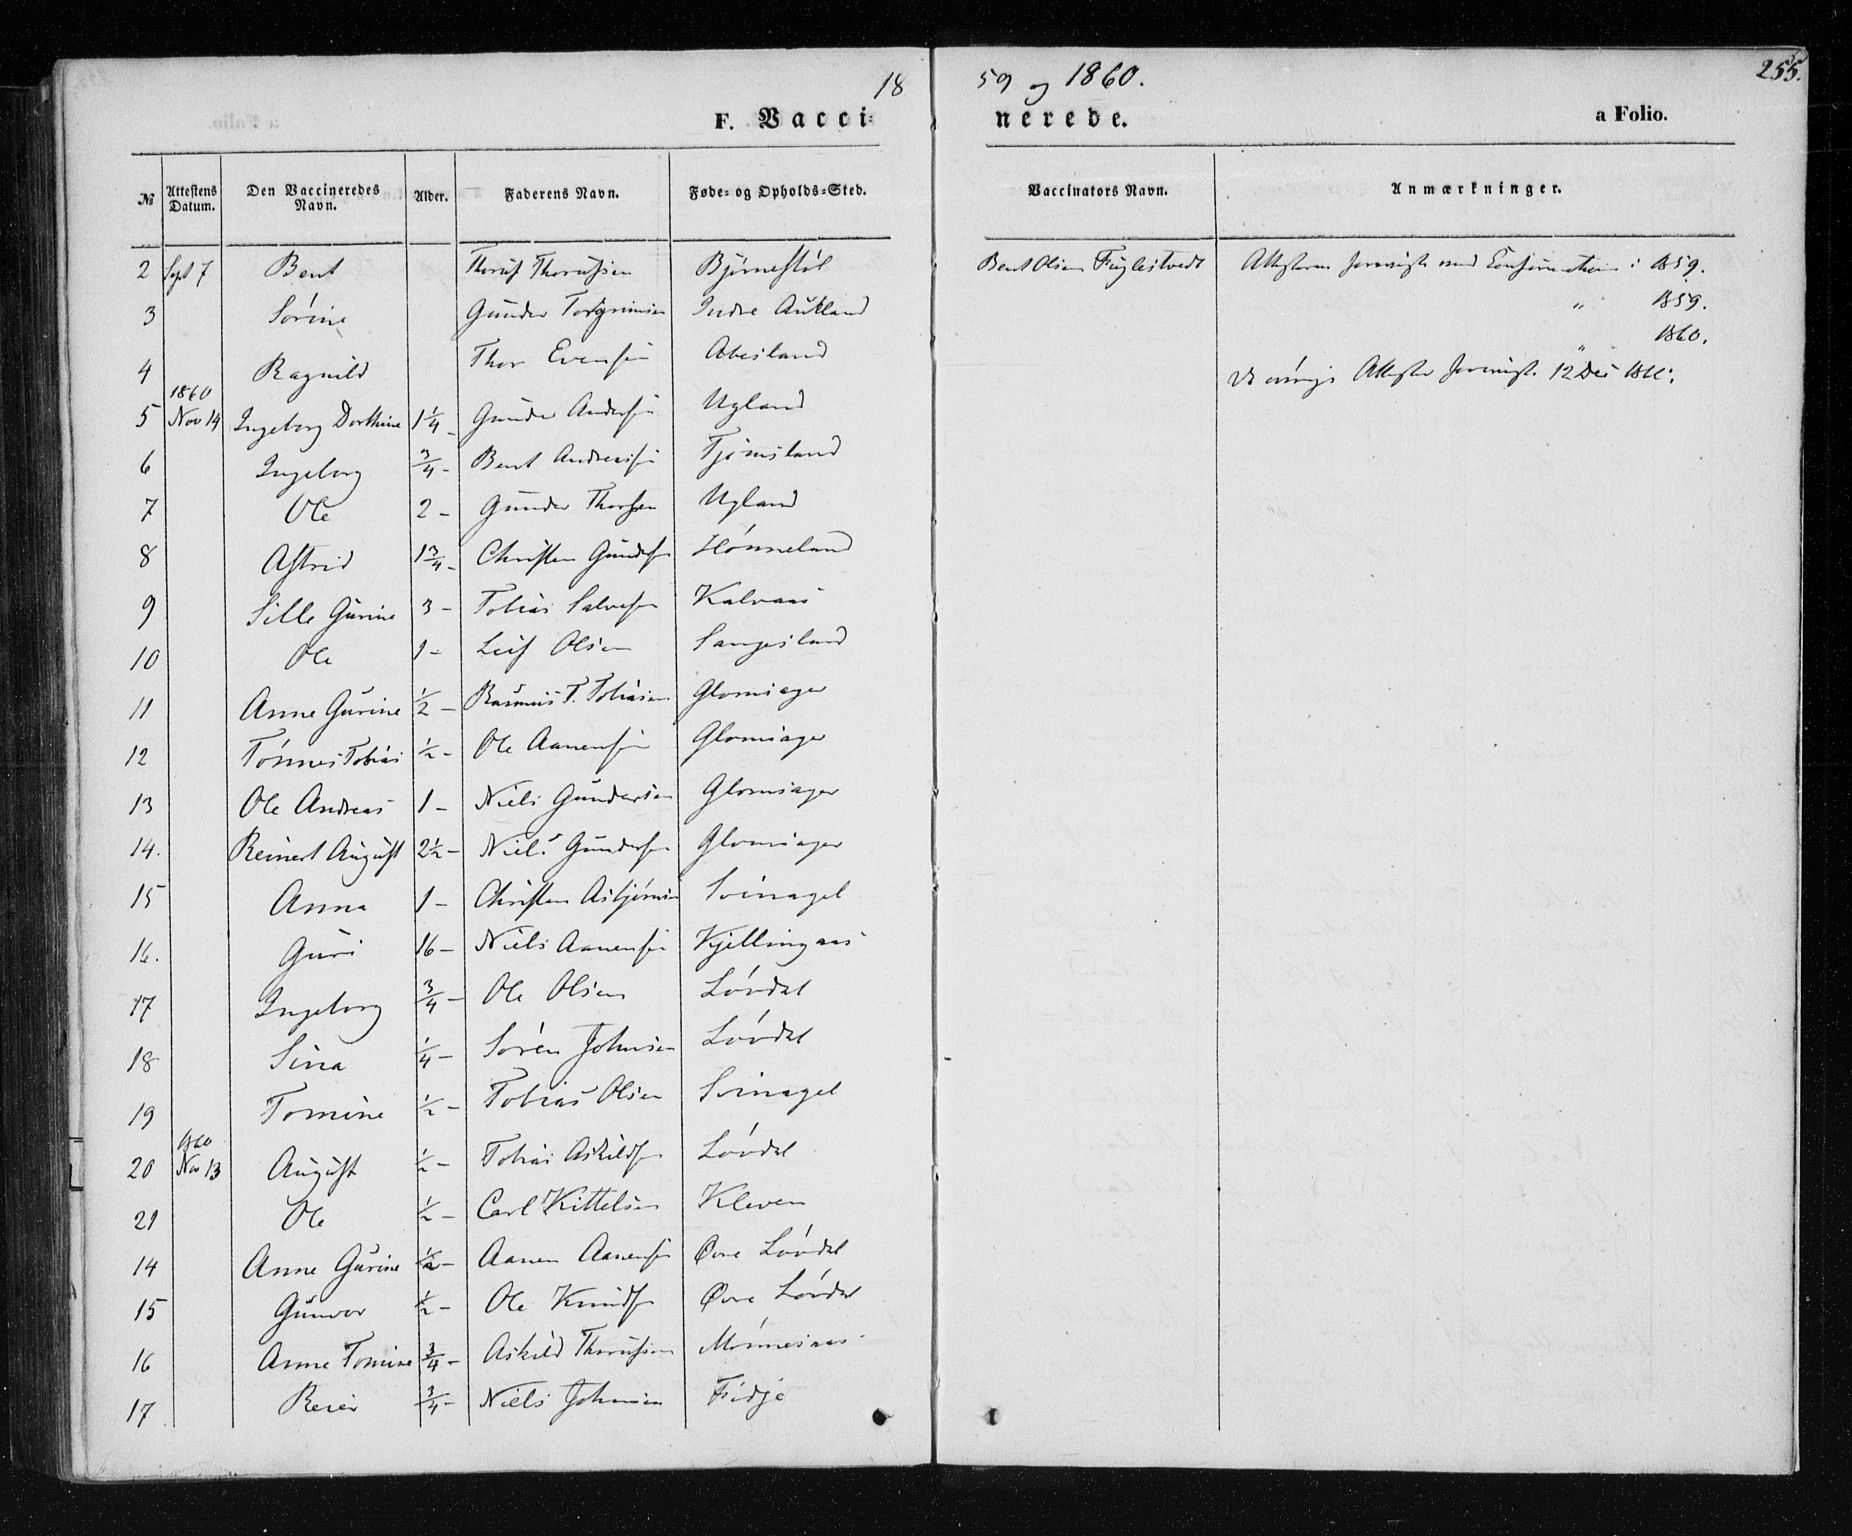 18 59 og 1860. 255.
F. Vaccinerede. a Folio.
№ Attestens Datum. Den Vaccineredes Navn. Alder. Faderens Navn. Føde- og Opholds-Sted. Vaccinators Navn. Anmærkninger.
2 Sept 7 Bent Bjørnestøl Bent Olsen Fuglestvedt i 1859.
3 Sørine Gunder Torgrimsen Indre Aukland " 1859.
4 Ragnild Thor Evensen Abesland " 1860.
12 Dec
1860
5 Nov 14 Ingeborg Dorthine 1¼ Gunder Andersen Ugland
6 Ingeborg ¾ - Bent Andreassen Tjømsland
7 Ole 2 - Gunder Thorsen Ugland
8 Astrid 1¾ - Christen Gundersen Hønneland
9 Sille Gurine 3 - Tobias Salvesen Kalvaas
10 Ole 1 - Leif Olsen Sangesland
11 Anne Gurine ½ - Rasmus T. Tobiasen Glomsager
12 Tønnes Tobias ½ - Ole Aanensen Glomsager
13 Ole Andreas 1 - Niels Gundersen Glomsager
14. Reinert August 2½ - Niels Gundersen Glomsager
15 Anna 1 - Christen Asbjørnsen Svinagel
16. Guri 16 - Niels Aanensen Kjellingaas
17 Ingeborg ¾ - Ole Olsen Løvdal
18 Sina ¼ - Søren Johnsen Løvdal
19 Tomine ½ - Tobias Olsen Svinagel
1860
20 Nov 13 August ½ - Tobias Askildsen Løvdal
21 Ole ½ - Carl Kittelsen Kleven
14 Anne Gurine ½ - Aanen Aanensen Øvre Løvdal
15 Gunvor ½ - Ole Knudsen Øvre Løvdal
16 Anne Tomine ¾ - Askild
17 Reier ¾ - Niels Johnsen Fidje